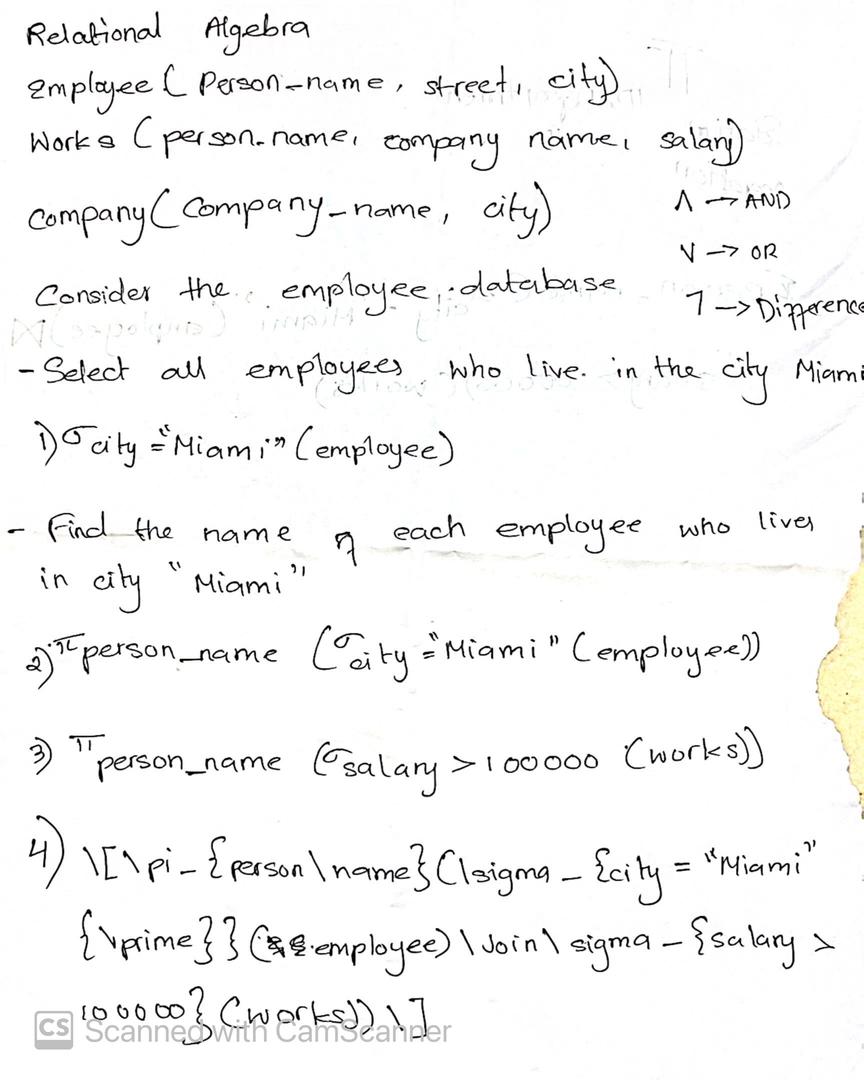 Relational Algebra
Employee ( Person-name, street, city)
Works ( person-name, company name, salary)
Company ( Company-name, city)
Λ → AND
V → OR
Consider the employee database
ㄱ → Difference
- Select all employees who live in the city Miami
1) σ city = "Miami" (employee)
- Find the name of each employee who lives
in city "Miami"
2) π person_name (σ city = "Miami" (employee))
3) π person_name (σ salary > 100000 (works))
4) \[\pi_{person\name}(\sigma_{city = "Miami"
{\prime}}(employee) \Join\ sigma_{salary >
100000} (works)) \]
CS Scanned with CamScanner